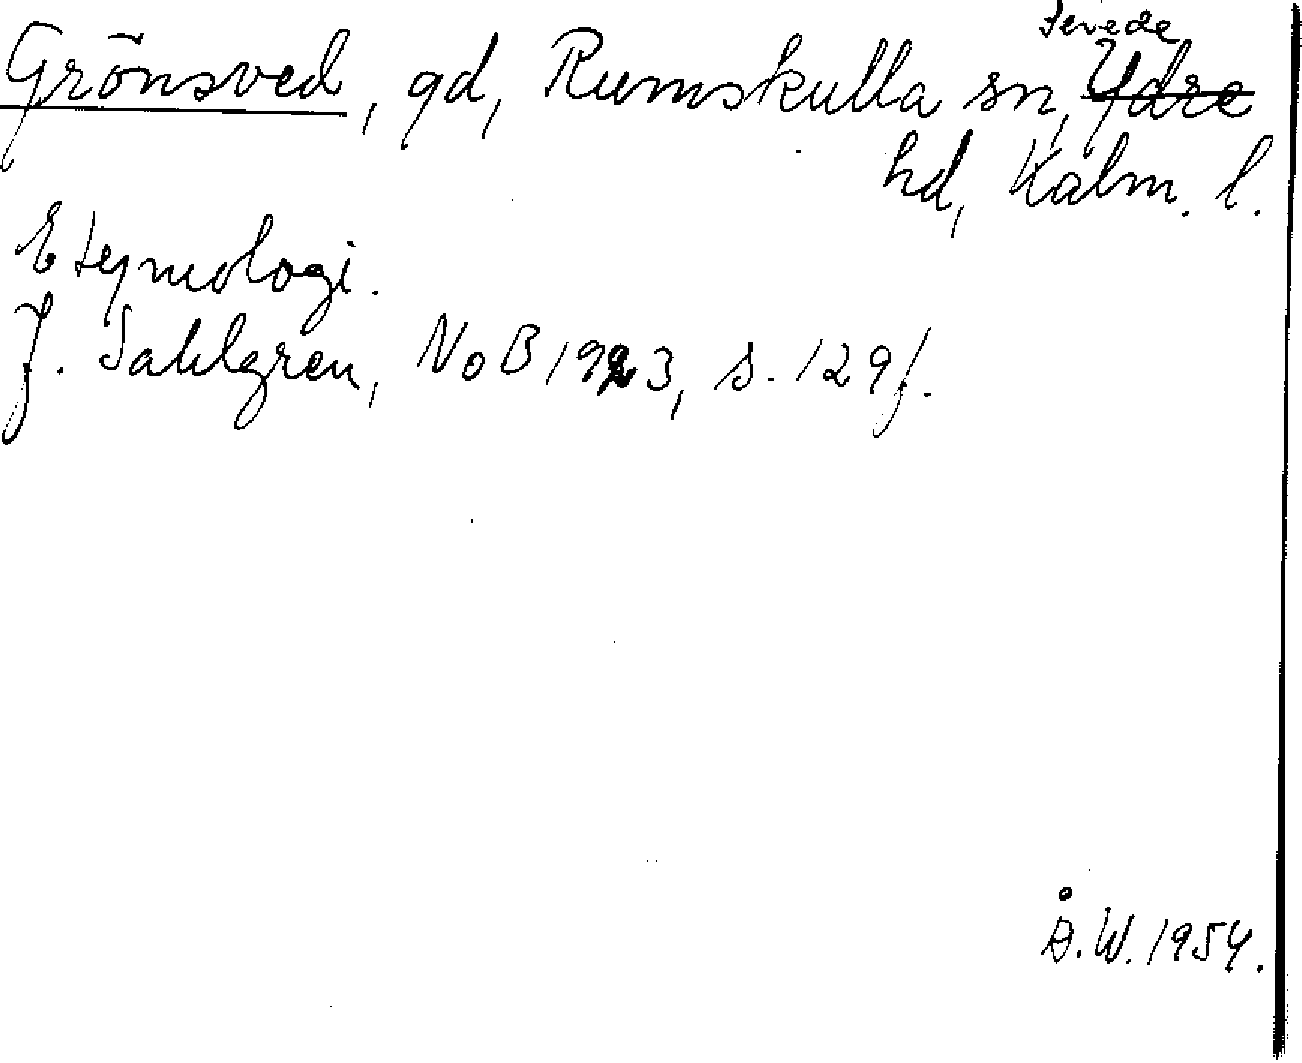 Sevede
Grönsved, gd, Rumskulla sn, Ydre
hd, Kalm. l.
Etymologi.
J. Sahlgren, NoB 1923, s. 129 f.
Å.W. 1954.